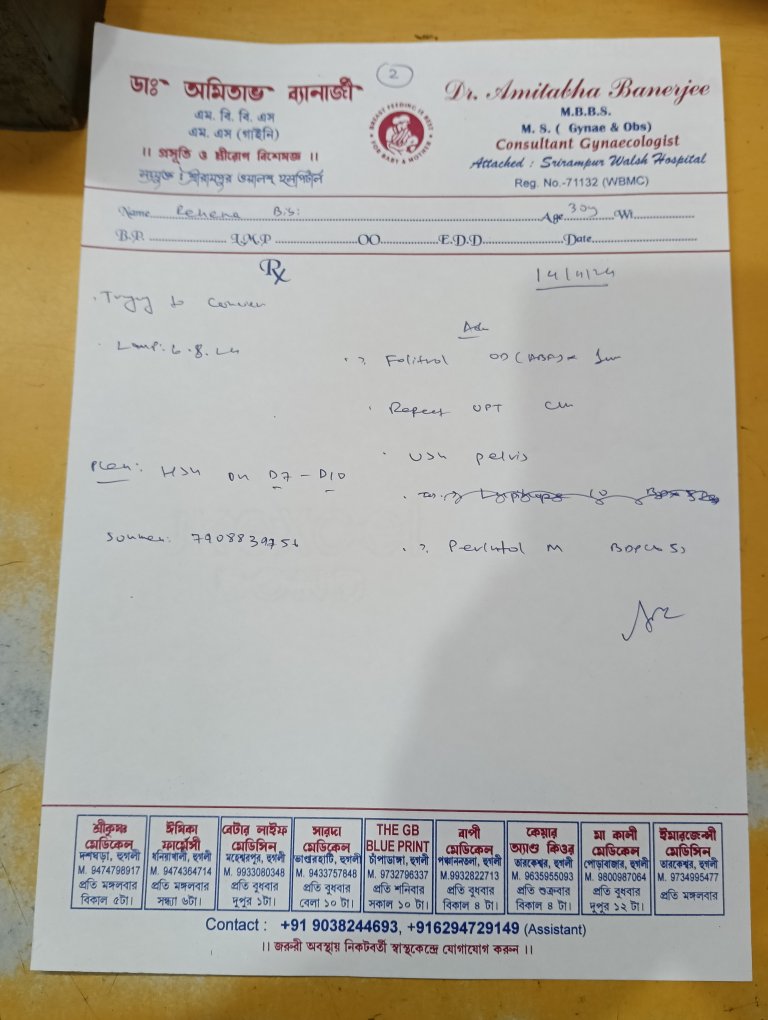 2
ডাঃ অমিতাভ ব্যানার্জী
এম. বি. বি. এস
এম. এস (গাইনি)
।। প্রসূতি ও স্ত্রীরোগ বিশেষজ্ঞ ।।
সংযুক্ত : শ্রীরামপুর ওয়ালশ হসপিটাল
BREAST FEEDING IS BEST FOR BABY & MOTHER
Dr. Amitabha Banerjee
M.B.B.S.
M. S. ( Gynae & Obs)
Consultant Gynaecologist
Attached : Srirampur Walsh Hospital
Reg. No.-71132 (WBMC)
Name Rehena Bibi Age 30y Wt
B.P. L.M.P OO E.D.D Date
Rx
Trying to
Adv
LMP: 6.8.24
Folitrol OD
Repeat UPT
USG pelvis
Plan: HSG on D7 - D10
M
শ্রীকৃষ্ণ মেডিকেল
দশঘড়া, হুগলী
M. 9474798917
প্রতি মঙ্গলবার
বিকাল ৫টা।
ঈসিকা ফার্মেসী
ধনিয়াখালী, হুগলী
M. 9474364714
প্রতি মঙ্গলবার
সন্ধ্যা ৬টা।
বেটার লাইফ মেডিসিন
মহেশ্বরপুর, হুগলী
M. 9933080348
প্রতি বুধবার
দুপুর ১টা।
সারদা মেডিকেল
ভান্ডারহাটি, হুগলী
M. 9433757848
প্রতি বুধবার
বেলা ১০ টা।
THE GB BLUE PRINT
চাঁপাডাঙ্গা, হুগলী
M. 9732796337
প্রতি শনিবার
সকাল ১০ টা।
বাপী মেডিকেল
পঞ্চাননতলা, হুগলী
M.9932822713
প্রতি বুধবার
বিকাল ৪ টা।
কেয়ার অ্যাণ্ড কিওর
তারকেশ্বর, হুগলী
M. 9635955093
প্রতি শুক্রবার
বিকাল ৪ টা।
মা কালী মেডিকেল
পোড়াবাজার, হুগলী
M. 9800987064
প্রতি বুধবার
দুপুর ১২ টা।
ইমারজেন্সী মেডিসিন
তারকেশ্বর, হুগলী
M. 9734995477
প্রতি মঙ্গলবার
Contact : +91 9038244693, +916294729149 (Assistant)
।। জরুরী অবস্থায় নিকটবর্তী স্বাস্থ্যকেন্দ্রে যোগাযোগ করুন ।।